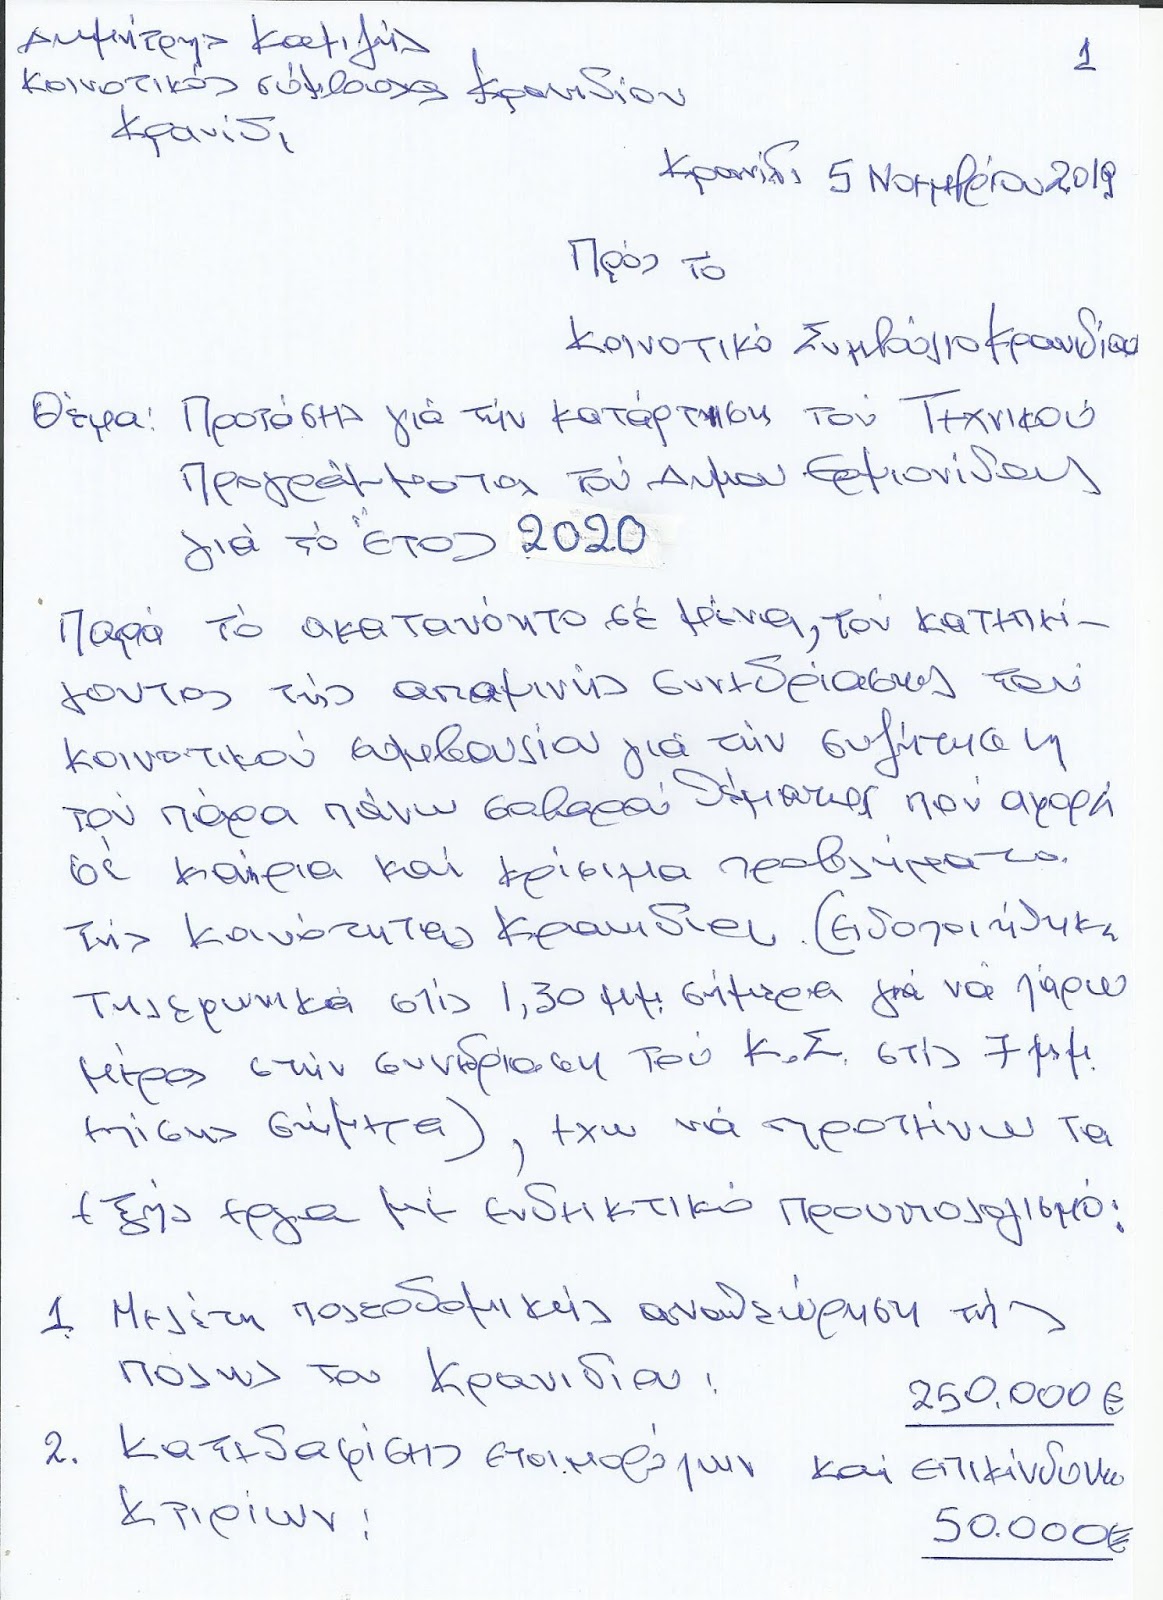 Δημήτρης Καμιζής
1
Κοινοτικός σύμβουλος Κρανιδίου
Κρανίδι
Κρανίδι 5 Νοεμβρίου 2019
Πρός το
Κοινοτικό Συμβούλιο Κρανιδίου
Θέμα: Προτάσεις γιά τήν κατάρτηση τού Τεχνικού
Προγράμματος τού Δήμου Ερμιονίδας
γιά τό Έτος 2020
Παρά τό ακατανόητο σέ μένα, τού κατεπεί-
γοντος τής αποψινής συνεδρίασης τού
κοινοτικού συμβουλίου γιά τήν συζήτηση
τού πάρα πάνω σοβαρού θέματος πού αφορά
σέ καίρια καί κρίσιμα προβλήματα
τής Κοινότητας Κρανιδίου. (Ειδοποιήθηκα
τηλεφωνικά στίς 1,30 μμ. σήμερα γιά νά πάρω
μέρος στήν συνεδρίαση τού Κ.Σ. στίς 7 μμ.
επίσης σήμερα), έχω νά προτείνω τα
εξής έργα μέ ενδεικτικό προυπολογισμό:
1 Μελέτη πολεοδομικής αναθεώρηση τής
πόλης του Κρανιδίου:
250.000€
2. Κατεδαφίσεις ετοιμορόπων καί επικίνδυνων
κτιρίων:
50.000€